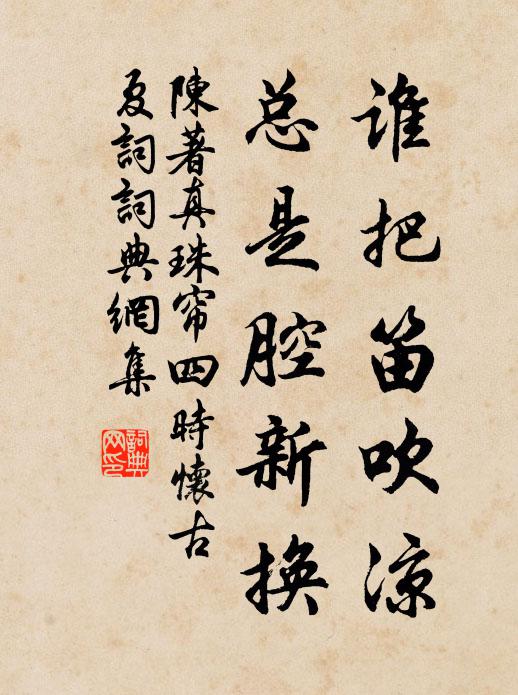 谁把笛吹凉
总是腔新换
陳著真珠帘四時懷古
夏詞詞典網集
詞典
网印